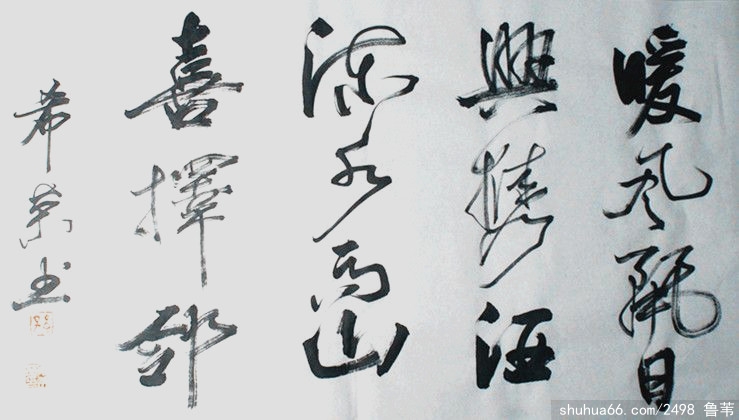 暖風麗日
興携酒
流水高山
喜擇鄰
希书
shuhua66.com/2498 鲁苇